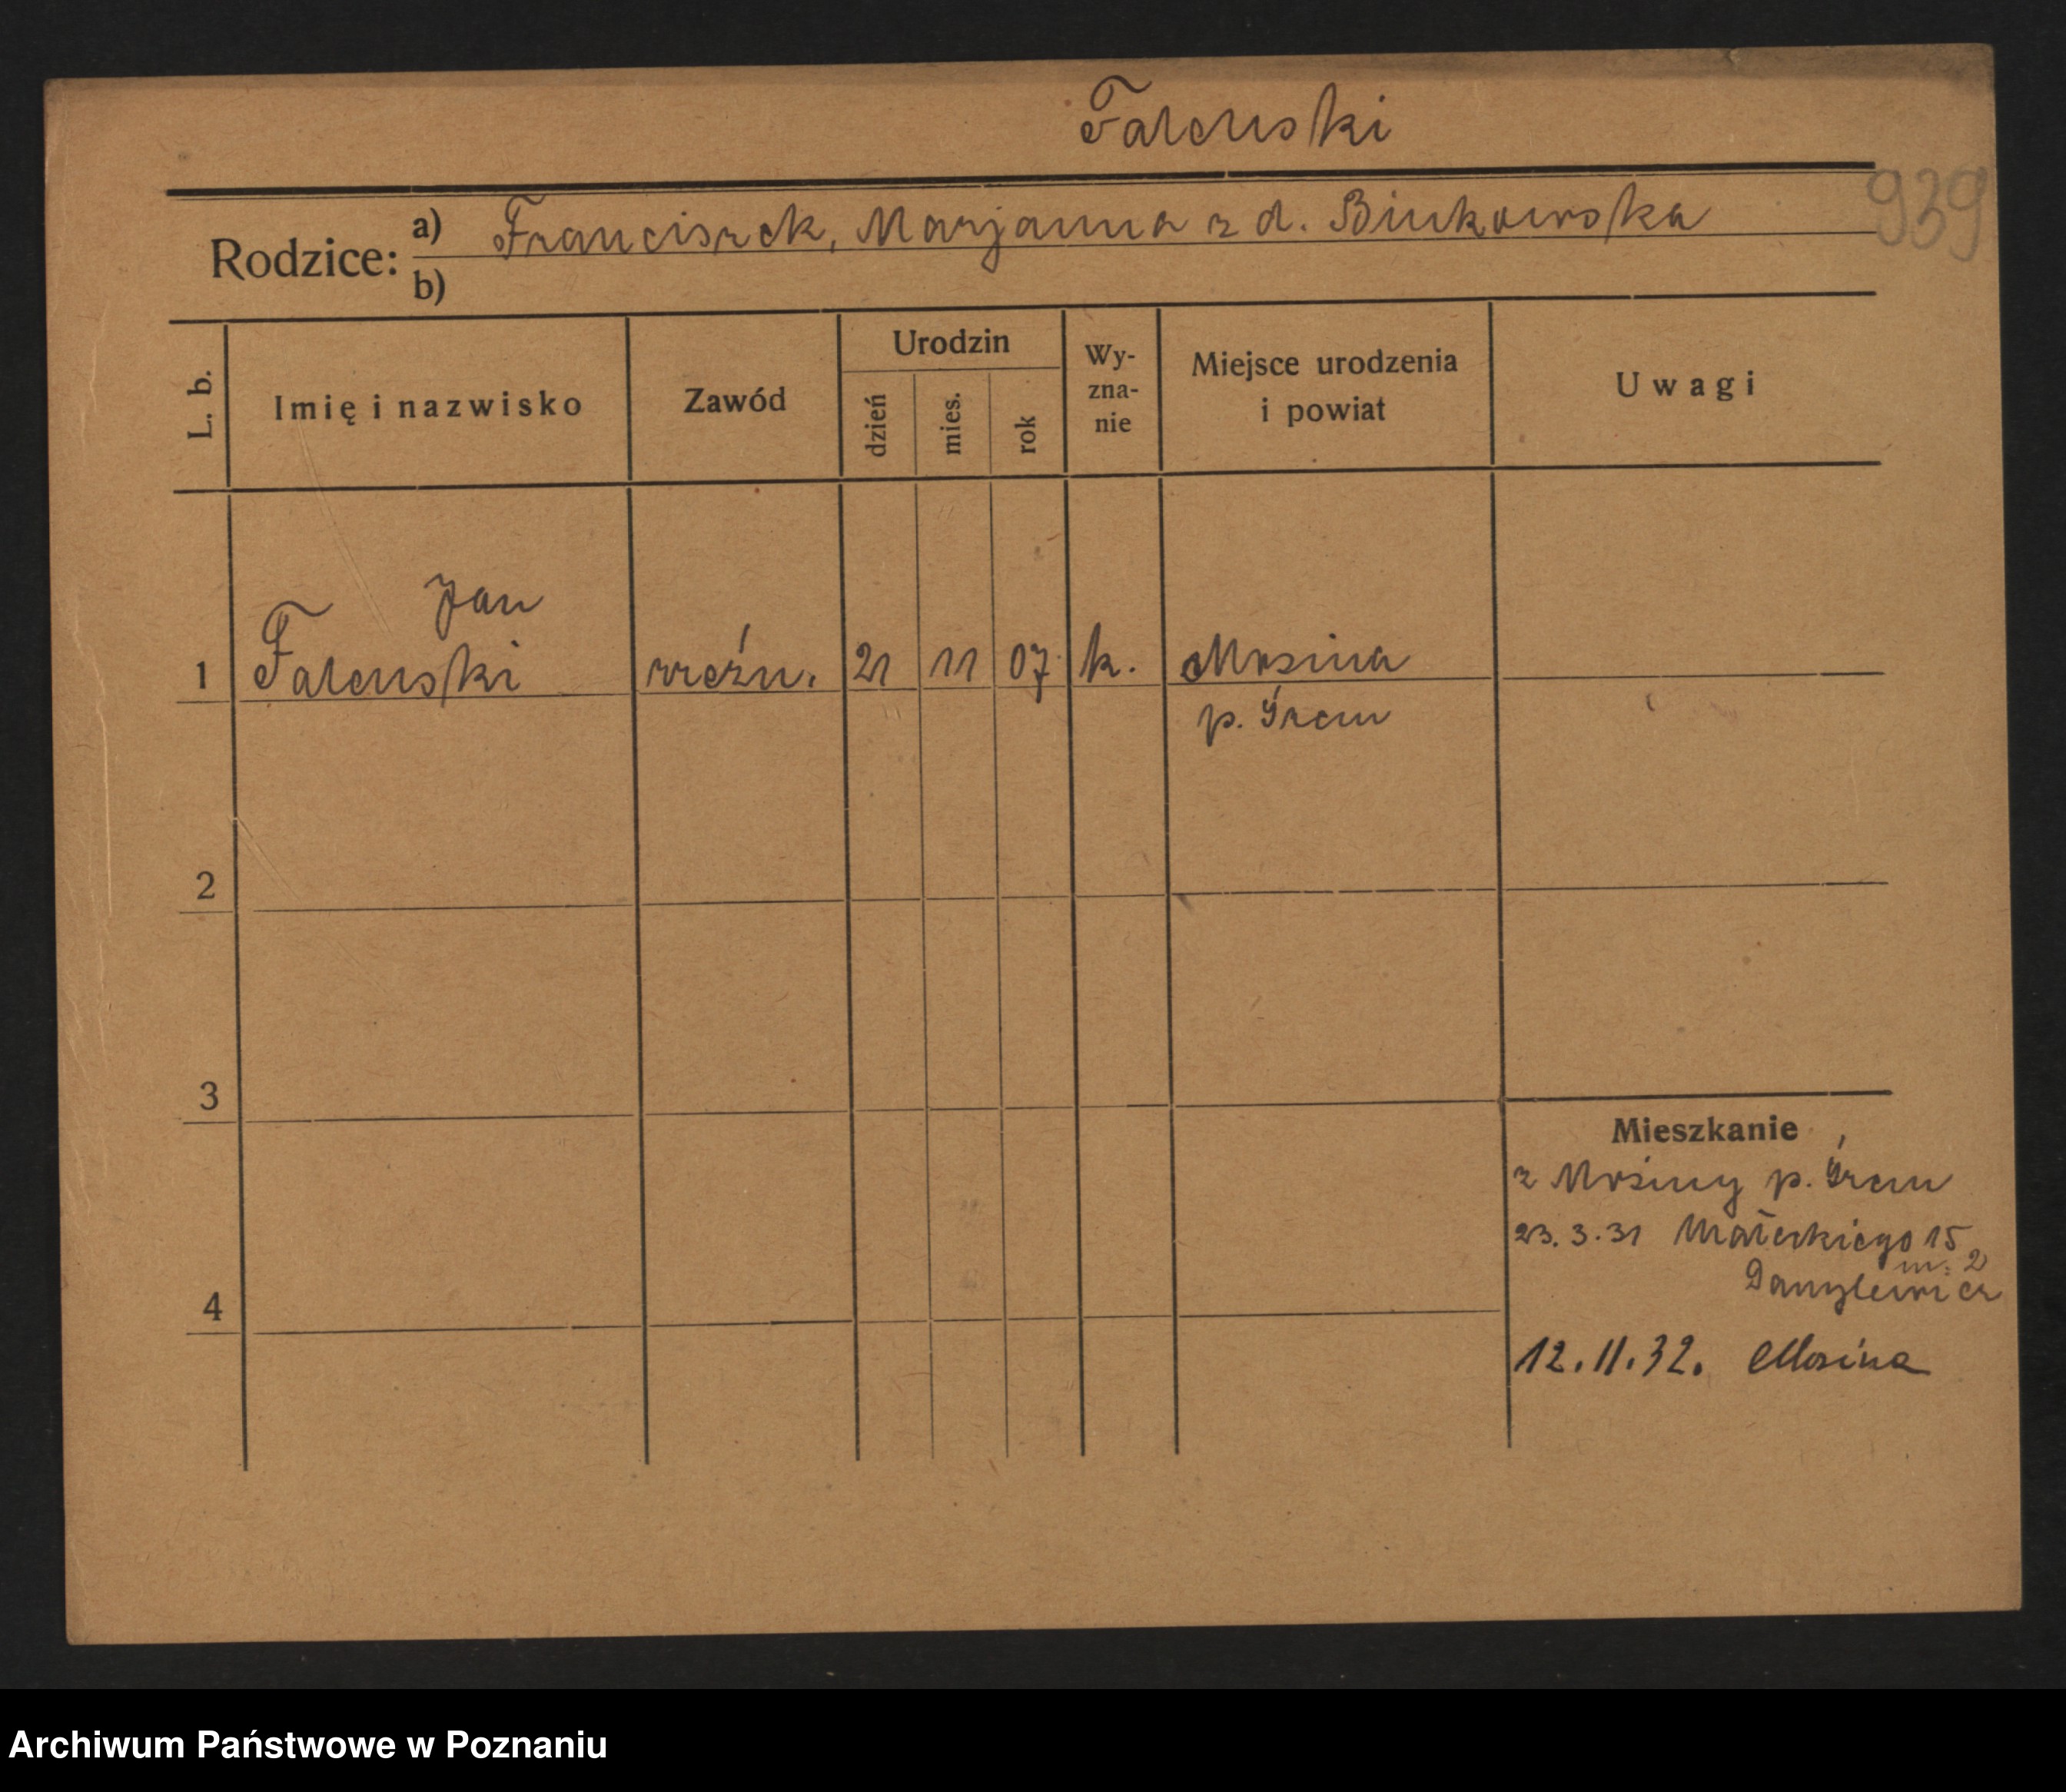 Falenski
939
Rodzice: a) Franciszek, Marjanna z d. Binkowska
b)
L. b. Imię i nazwisko Zawód Urodzin dzień mies. rok Wy-zna-nie Miejsce urodzenia i powiat Uwagi
Jan
1 Falenski rzeźn. 21 11 07 k. Mosina
p. Śrem
2
3
Mieszkanie
z Mosiny p. Śrem
23.3.31 Małeckiego 15
m. 2
4
12.11.32. Mosina
Archiwum Państwowe w Poznaniu